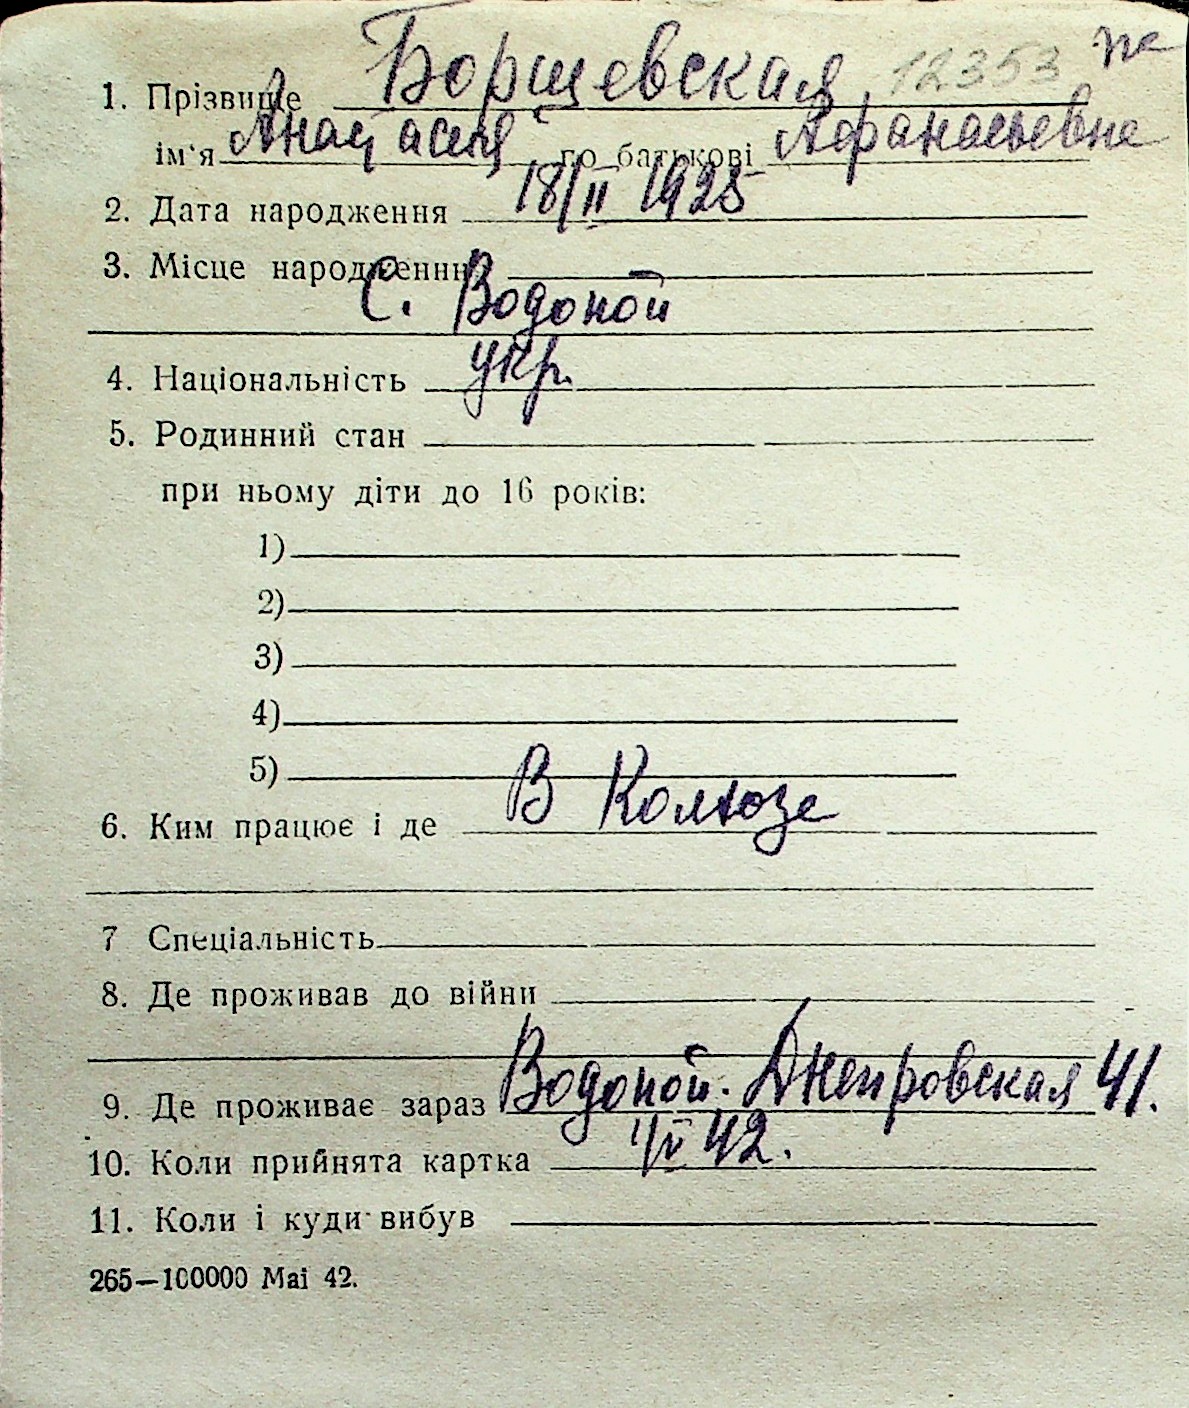 1. Прізвище Борщевская 12353
ім'я Анастасия по батькові Афанасьевна
2. Дата народження 18/II 1925
3. Місце народження
С. Водопой
4. Національність укр.
5. Родинний стан
при ньому діти до 16 років:
1)
2)
3)
4)
5)
6. Ким працює і де В Колхозе
7 Спеціальність
8. Де проживав до війни
9. Де проживає зараз Водопой. Днепровская 41.
10. Коли прийнята картка 1/IV 42.
11. Коли і куди вибув
265—100000 Mai 42.